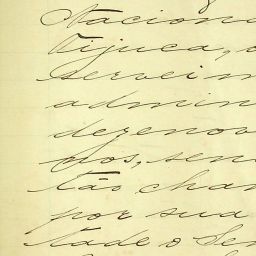 Naciona
Tijuca, o
servei m
admin
dezenov
gos, sen
tão char
por sua
tade o Se